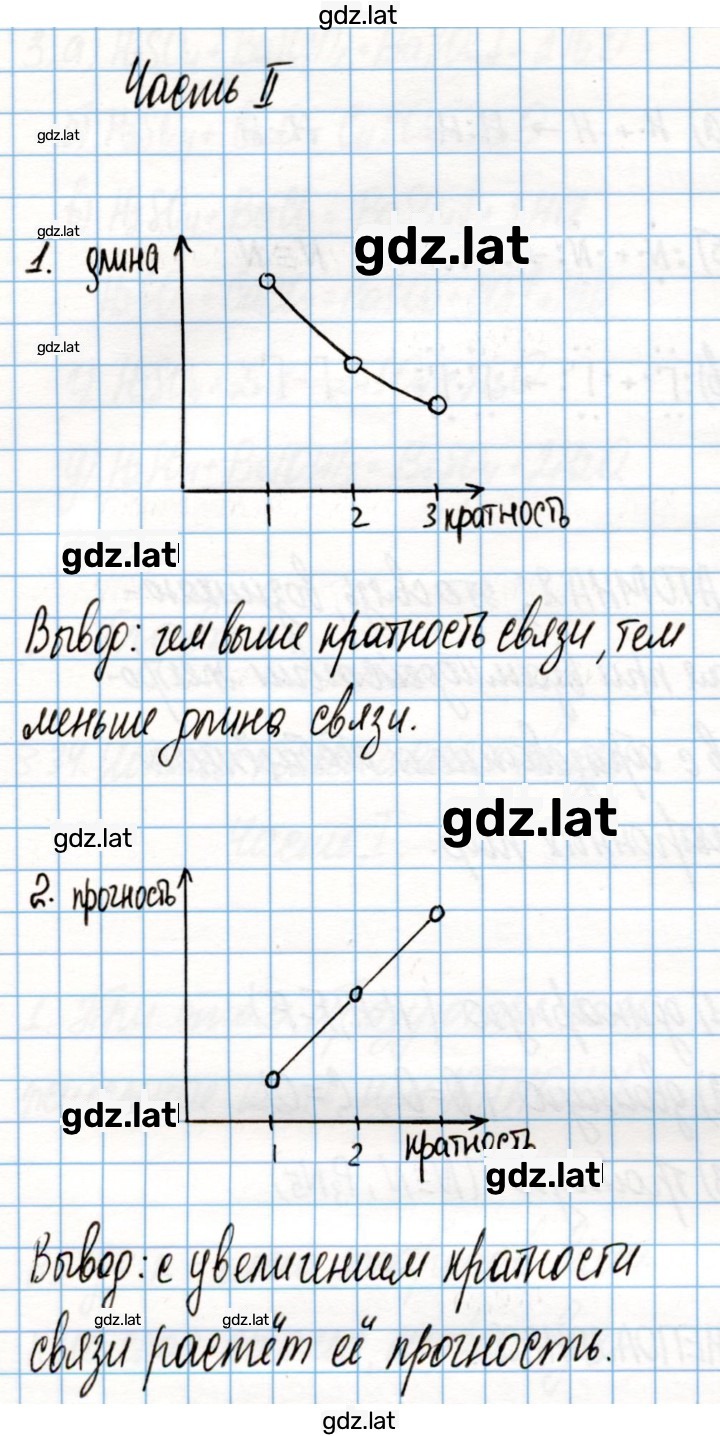 gdz.lat
Часть II
gdz.lat
gdz.lat
1. длина
gdz.lat
gdz.lat
1 2 3 кратность
gdz.lat
Вывод: чем выше кратность связи, тем
меньше длина связи.
gdz.lat
gdz.lat
2. прочность
gdz.lat
1 2 кратность
gdz.lat
Вывод: с увеличением кратности
gdz.lat gdz.lat
связи растёт её прочность.
gdz.lat